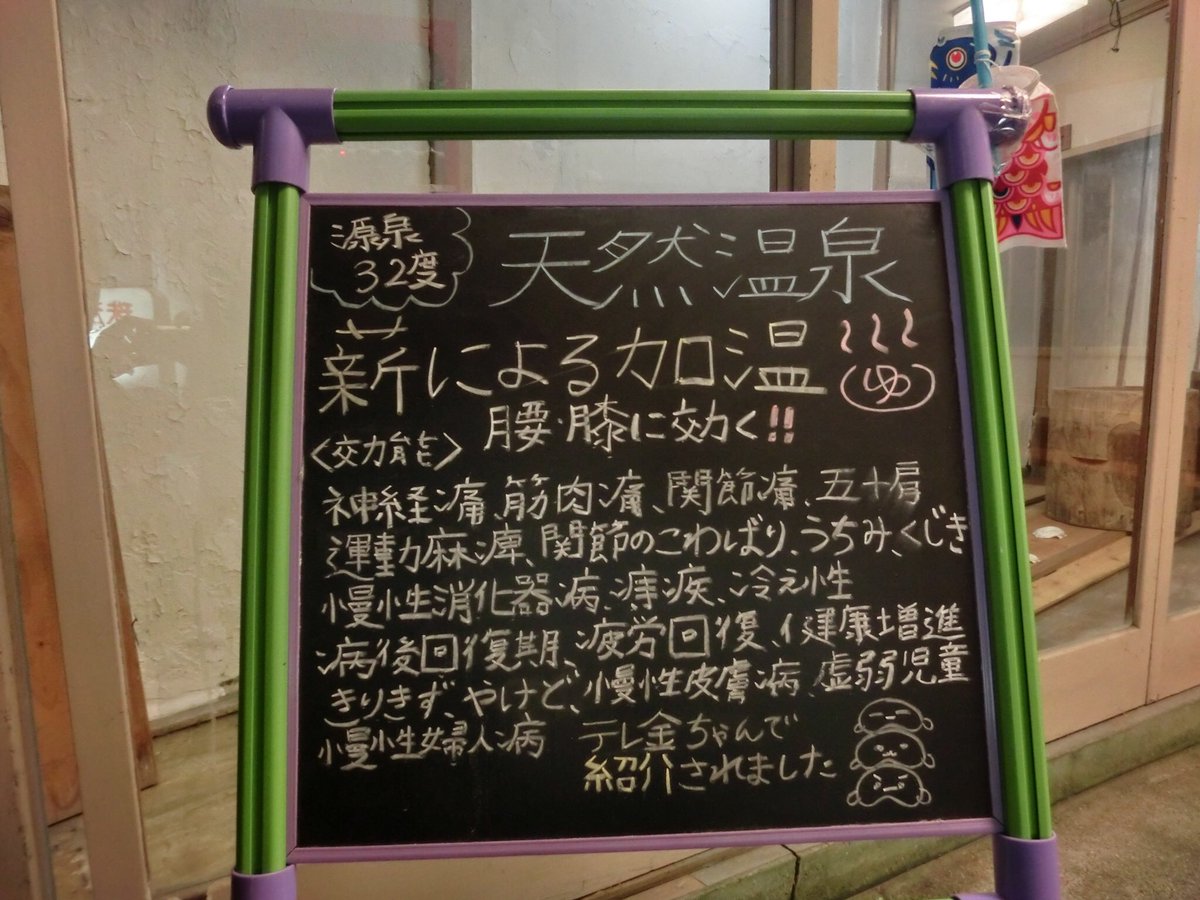 源泉
32度
天然温泉
薪による加温
ゆ
腰・膝に効く!!
<効能>
神経痛、筋肉痛、関節痛、五十肩
運動麻痺、関節のこわばり、うちみ、くじき
慢性消化器病、痔疾、冷え性
病後回復期、疲労回復、健康増進
きりきず、やけど、慢性皮膚病、虚弱児童
慢性婦人病
テレ金ちゃんで
紹介されました